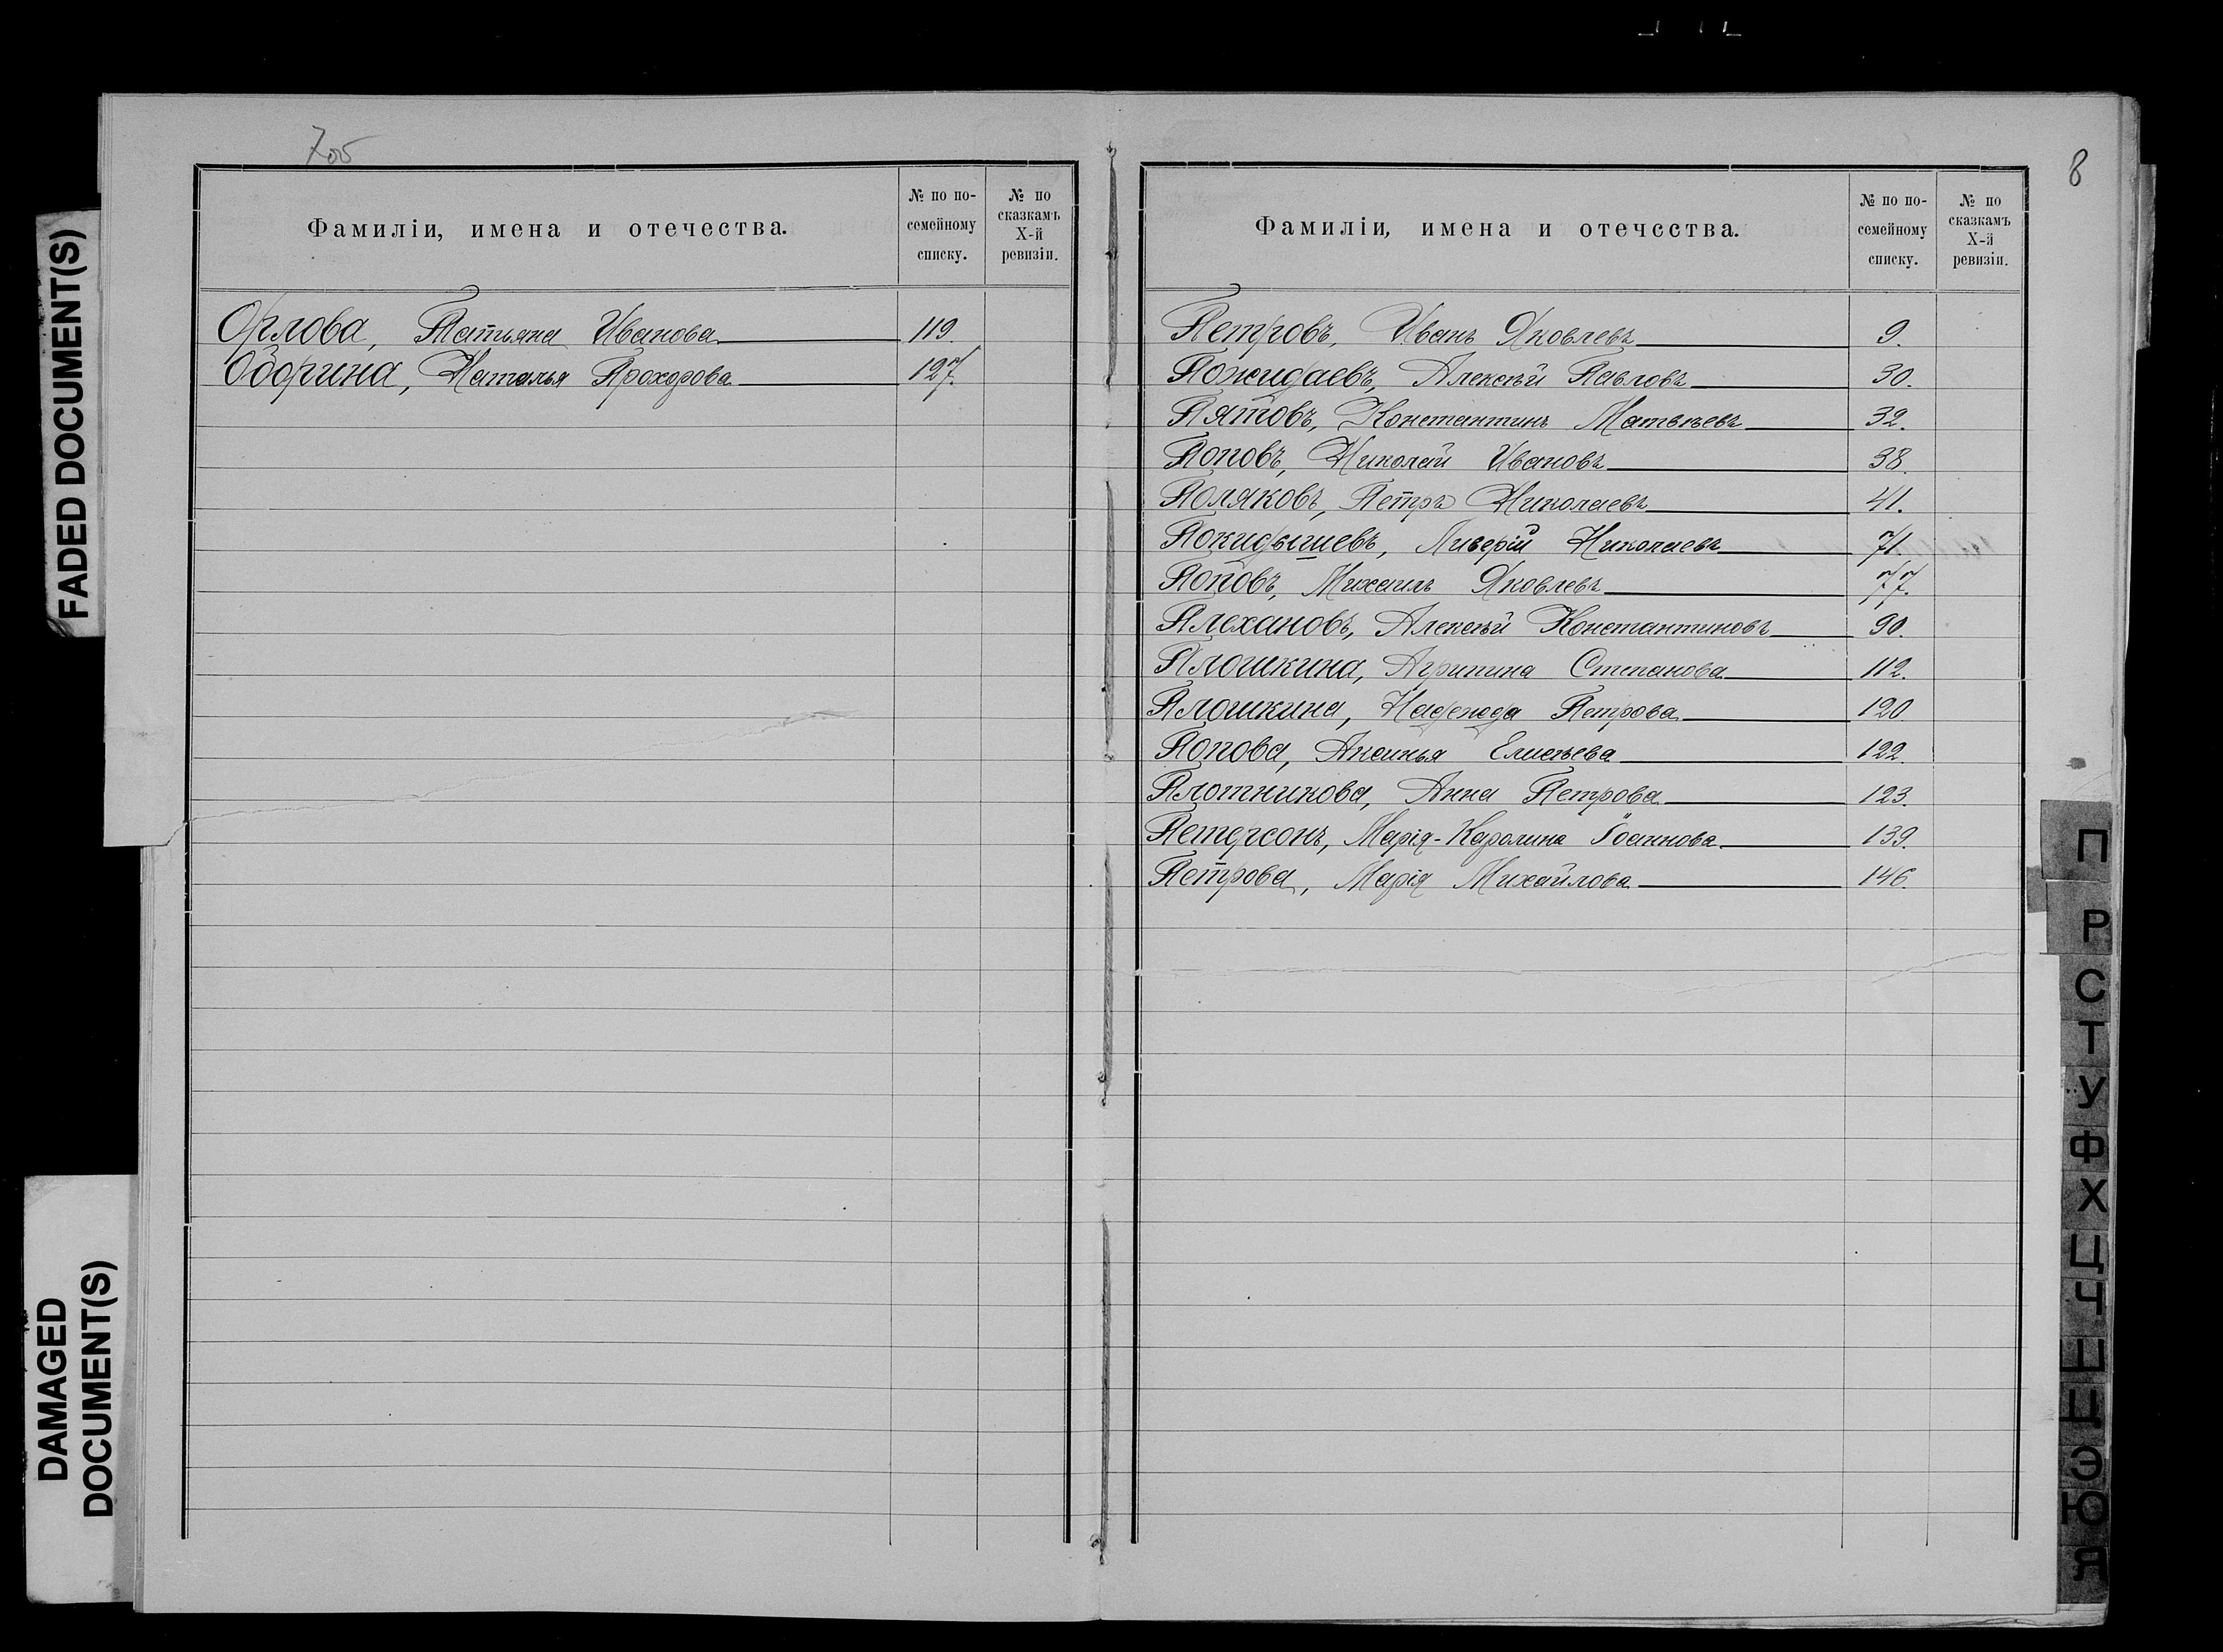 FADED DOCUMENT(S)
DAMAGED DOCUMENT(S)
7об
Фамиліи, имена и отечества.
№ по по-семейному списку.
№ по сказкамъ X-й ревизіи.
Орлова, Татьяна Иванова 119.
Оборина, Наталья Прохорова 127.
8
Фамиліи, имена и отечества.
№ по по-семейному списку.
№ по сказкамъ X-й ревизіи.
Петровъ, Иванъ Яковлевъ 9.
Пожидаевъ, Алексѣй Павловъ 30.
Пятовъ, Константинъ Матвѣевъ 32.
Поповъ, Николай Ивановъ 38.
Поляковъ, Петръ Николаевъ 41.
Покидышевъ, Ливерій Николаевъ 71
Поповъ, Михаилъ Яковлевъ 77.
Плехановъ, Алексѣй Константиновъ 90.
Плюшкина, Агрипина Степанова 112.
Плюшкина, Надежда Петрова 120
Попова, Аксинья Елисѣева 122.
Плотникова, Анна Петрова 123.
Петерсонъ, Марія-Каролина Іоаннова 139.
Петрова, Марія Михайлова 146.
П
Р
С
Т
У
Ф
Х
Ц
Ч
Ш
Щ
Э
Ю
Я